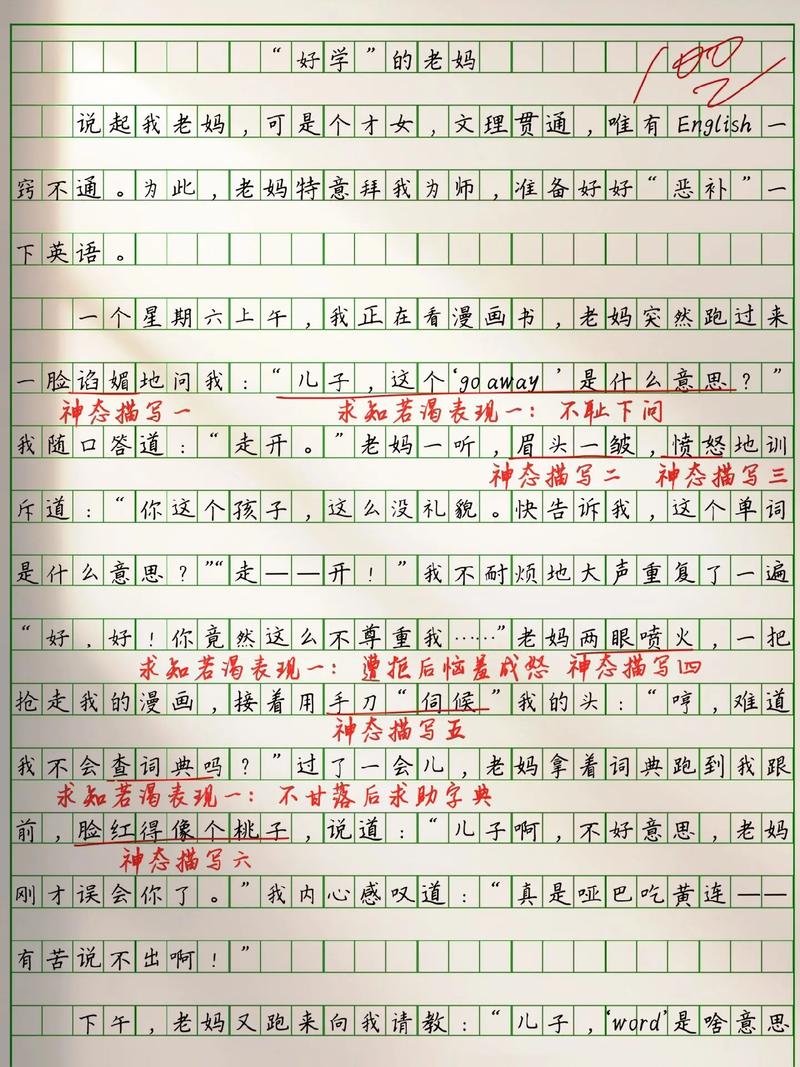 “好学”的老妈
100
说起我老妈，可是个才女，文理贯通，唯有English一
窍不通。为此，老妈特意拜我为师，准备好好“恶补”一
下英语。
一个星期六上午，我正在看漫画书，老妈突然跑过来
一脸谄媚地问我：“儿子，这个‘go away’是什么意思？”
神态描写一 求知若渴表现一：不耻下问
我随口答道：“走开。”老妈一听，眉头一皱，愤怒地训
神态描写二 神态描写三
斥道：“你这个孩子，这么没礼貌。快告诉我，这个单词
是什么意思？”“走——开！”我不耐烦地大声重复了一遍
“好，好！你竟然这么不尊重我……”老妈两眼喷火，一把
求知若渴表现一：遭拒后恼羞成怒 神态描写四
抢走我的漫画，接着用手刀“伺候”我的头：“哼，难道
神态描写五
我不会查词典吗？”过了一会儿，老妈拿着词典跑到我跟
求知若渴表现一：不甘落后求助字典
前，脸红得像个桃子，说道：“儿子啊，不好意思，老妈
神态描写六
刚才误会你了。”我内心感叹道：“真是哑巴吃黄连——
有苦说不出啊！”
下午，老妈又跑来向我请教：“儿子，‘word’是啥意思